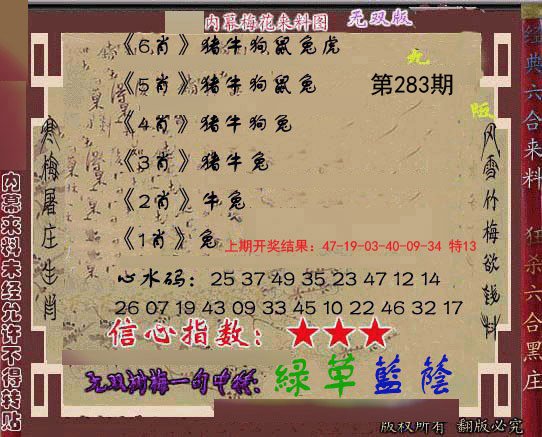 内幕梅花来料图 无双版
《6肖》猪牛狗鼠兔虎
九
《5肖》猪牛狗鼠兔 第283期
《4肖》猪牛狗兔
《3肖》猪牛兔
《2肖》牛兔
《1肖》兔
上期开奖结果：47-19-03-40-09-34 特13
心水码：25 37 49 35 23 47 12 14
26 07 19 43 09 33 45 10 22 46 32 17
信心指数：★★★
一句中特：綠草藍蔭
寒梅屠庄生肖
风雪竹梅欲钱料
内幕来料未经允许不得转贴
经典六合来料 狂杀六合黑庄
版权所有 翻版必究